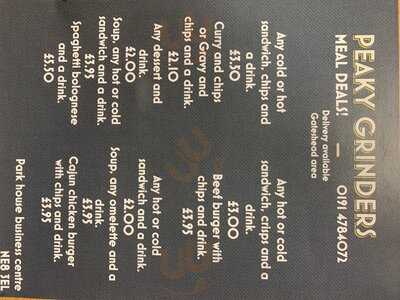 PEAKY GRINDERS
MEAL DEALS! — 0191 4784072
Delivery available
Gateshead area
Any cold or hot
sandwich, chips and
a drink.
£3.50
Curry and chips
or Gravy and
chips and a drink.
£2.10
Any dessert and
drink.
£2.00
Soup, any hot or cold
sandwich and a drink.
£3.95
Spaghetti bolognese
and a drink.
£3.50
Any hot or cold
sandwich, crisps and a
drink.
£3.00
Beef burger with
chips and drink.
£3.95
Any hot or cold
sandwich and a drink.
£2.00
Soup, any omelette and a
drink.
£3.95
Cajun chicken burger
with chips and drink.
£3.95
Park house business centre
NE8 3EL